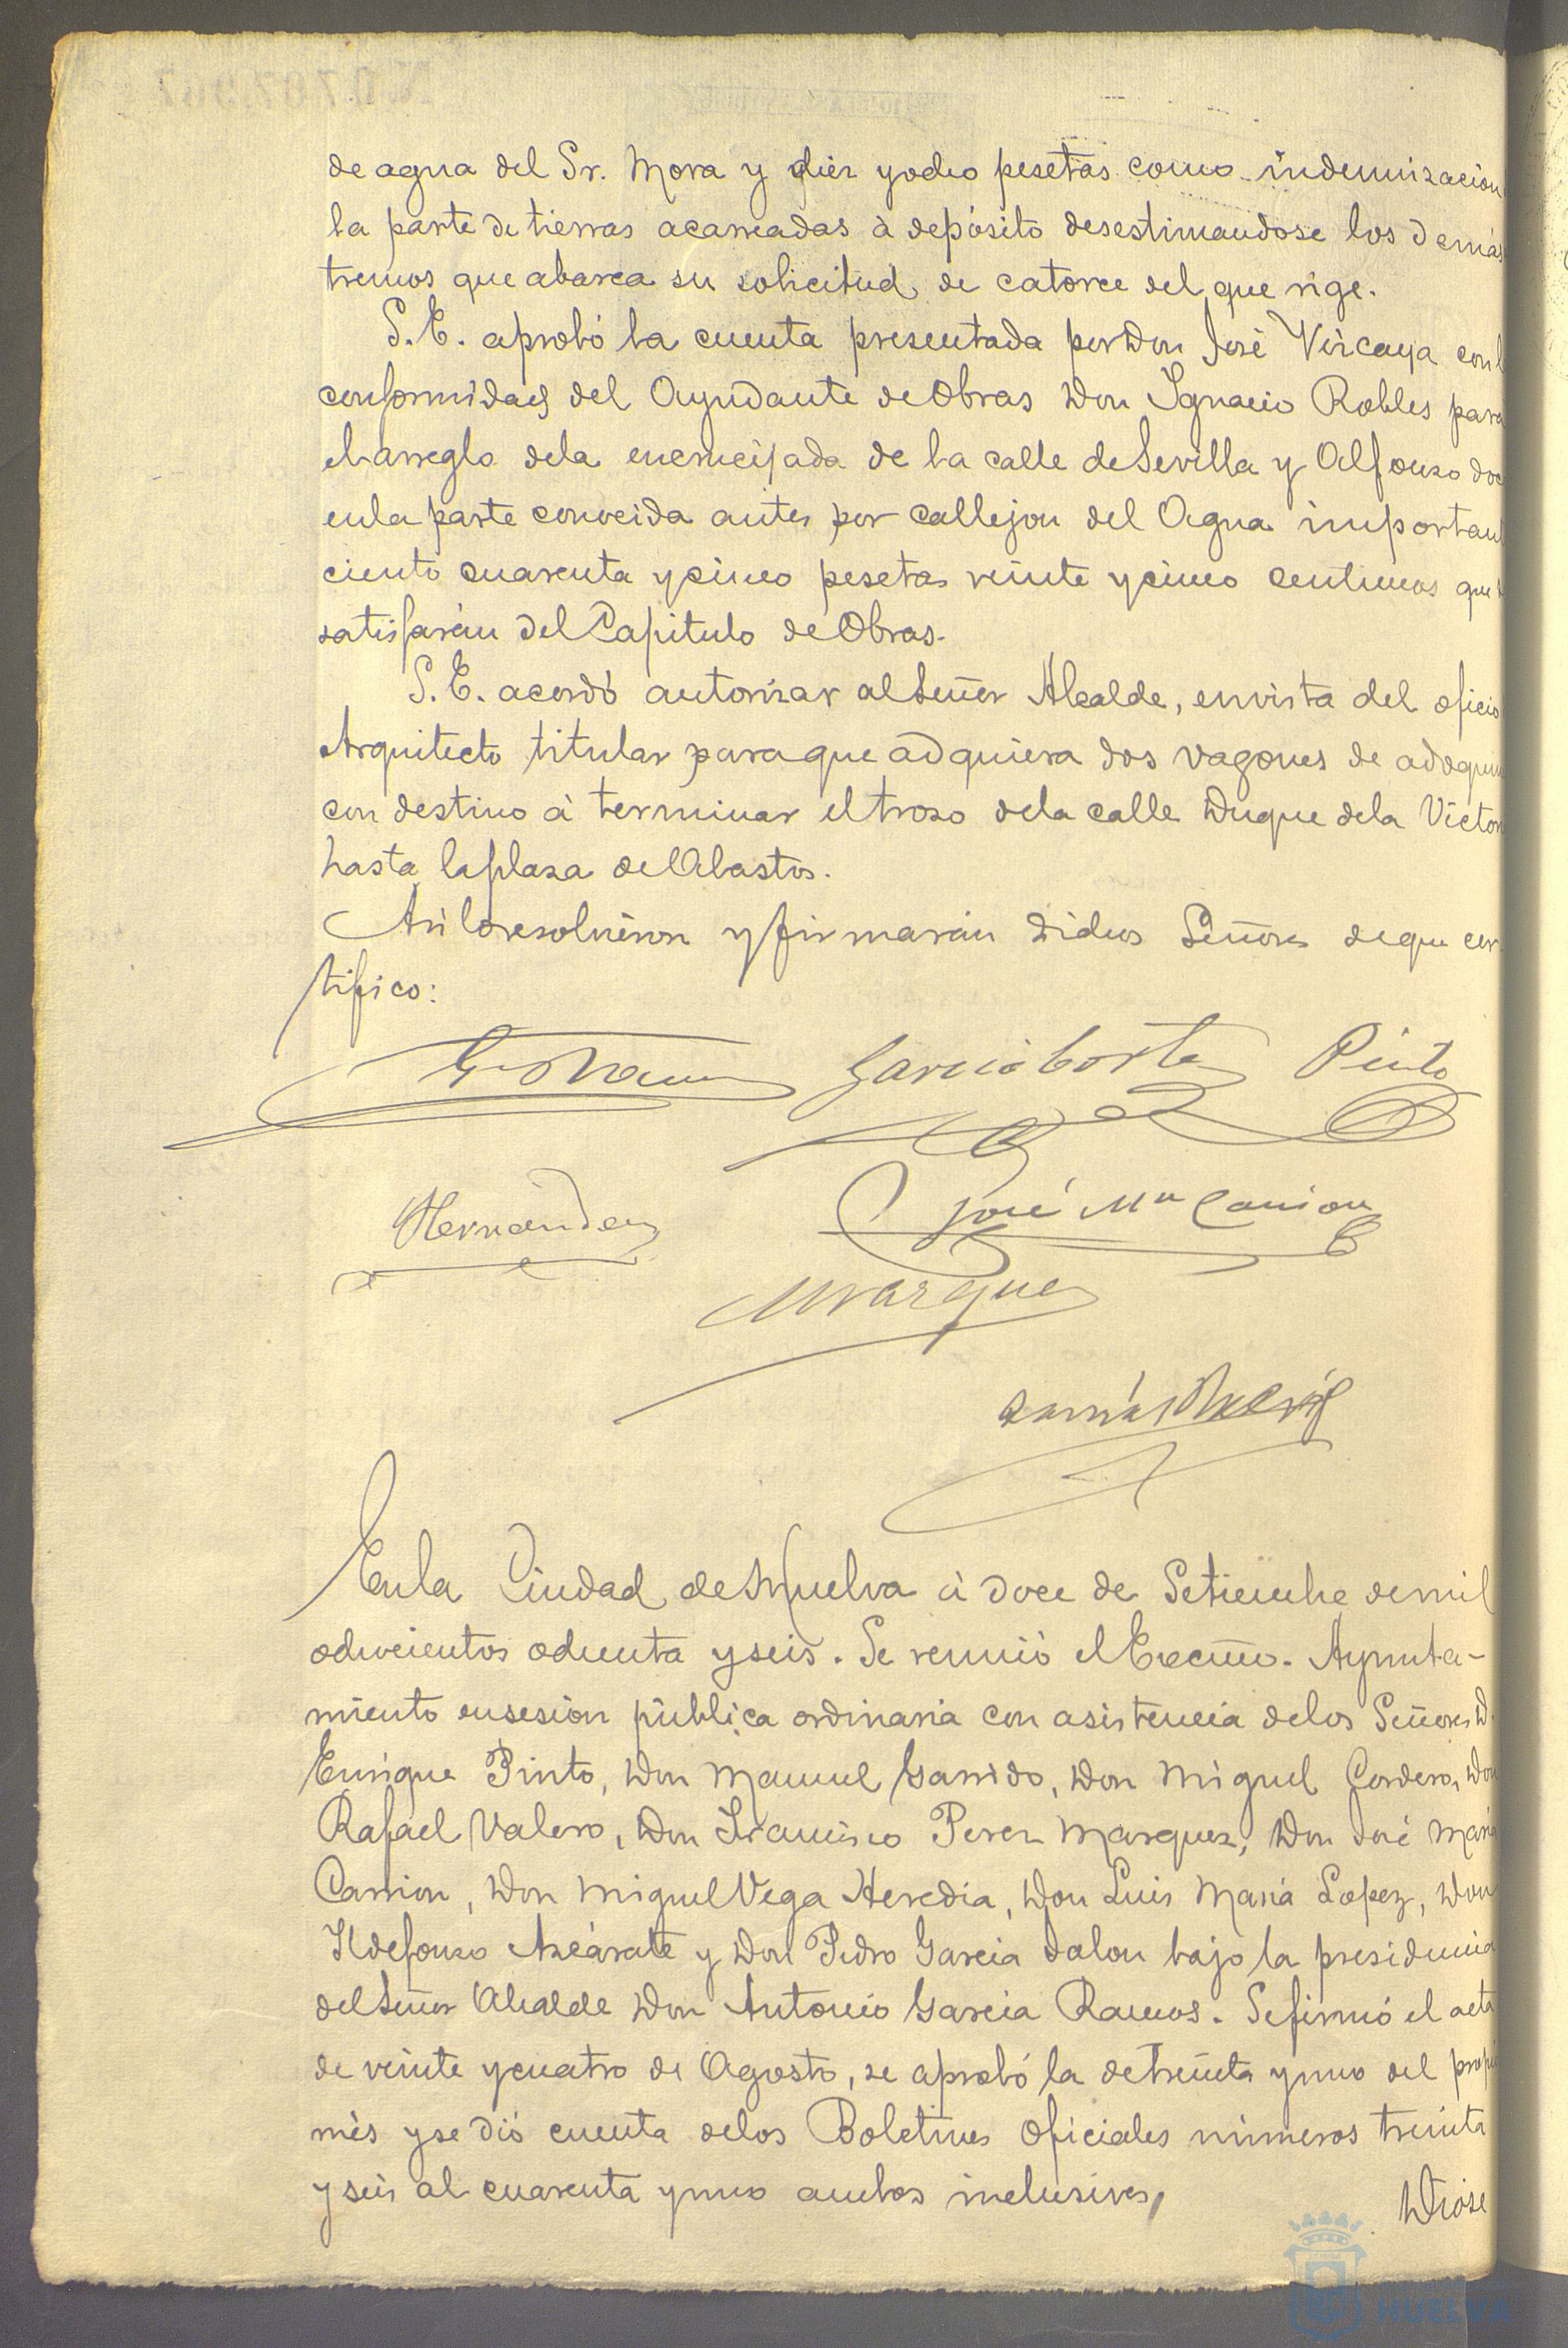 de agua del Sr. Mora y diez y ocho pesetas como indemnizacion
la parte de tierras acarreadas à depósito desestimandose los demás
tremos que abarca su solicitud de catorce del que rige.
S. E. aprobó la cuenta presentada por Don José Vizcaya con l
conformidad del Ayudante de Obras Don Ignacio Robles para
el arreglo de la encrucijada de la calle de Sevilla y Alfonso doc
en la parte conocida antes por callejon del Agua important
ciento cuarenta y cinco pesetas veinte y cinco centimos que
satisfarán del Capitulo de Obras.
S. E. acordó autorizar al Señor Alcalde, en vista del oficio
Arquitecto titular para que adquiera dos vagones de adoquin
con destino à terminar el trozo de la calle Duque de la Victor
hasta la plaza del Abastos.
Asi lo resolvieron y firmarán dichos Señores de que cer
tifico:
Garcia Cortes Pinto
Hernandez José Mª Carrion
Marquez
En la Ciudad de Huelva à doce de Setiembre de mil
ochocientos ochenta y seis. Se reunió el Excmo. Ayunta-
miento en sesion pública ordinaria con asistencia de los Señores D.
Enrique Pinto, Don Manuel Garrido, Don Miguel Cordero, Don
Rafael Valero, Don Francisco Perez Marquez, Don José Maria
Carrion, Don Miguel Vega Heredia, Don Luis Maria Lopez, Don
Ildefonso Azcárate y Don Pedro Garcia Jalon bajo la presidencia
del Señor Alcalde Don Antonio Garcia Ramos. Se firmó el acta
de veinte y cuatro de Agosto, se aprobó la de treinta y uno del propio
mes y se dió cuenta de los Boletines Oficiales números treinta
y seis al cuarenta y uno ambos inclusives, Diose
HUELVA